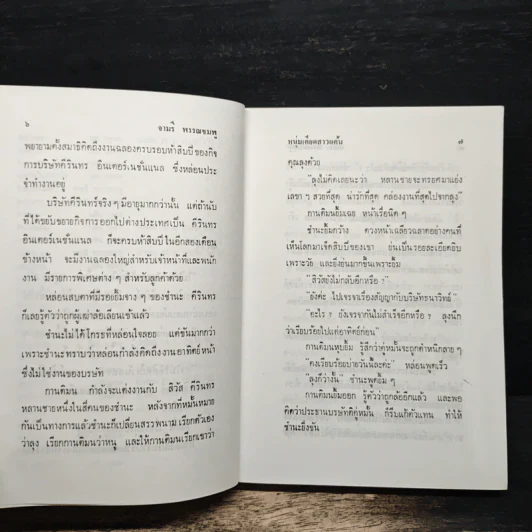 ๖
จามรี พรรณชมพู
พยายามตั้งสมาธิคิดถึงงานฉลองครบรอบห้าสิบปีของกิจ
การบริษัทคีรินทร อินเตอร์เนชั่นแนล ซึ่งหล่อนประ
จำทำงานอยู่
บริษัทคีรินทรจริงๆ มีอายุมากกว่านั้น แต่ถ้านับ
ที่ได้ขยับขยายกิจการออกไปต่างประเทศเป็น คีรินทร
อินเตอร์เนชั่นแนล ก็จะครบห้าสิบปีในอีกสองเดือน
ข้างหน้า จะมีงานฉลองใหญ่สำหรับเจ้าหน้าที่และพนัก
งาน มีรายการพิเศษต่าง ๆ สำหรับลูกค้าด้วย
หล่อนสบตาที่มีรอยยิ้มจาง ๆ ของชำนะ คีรินทร
ก็เลยรู้ตัวว่าถูกผู้เฒ่าล้อเลียนเข้าแล้ว
ชำนะไม่ได้โกรธที่หล่อนใจลอย แต่ขันมากกว่า
เพราะชำนะทราบว่าหล่อนกำลังคิดถึงงานอาทิตย์หน้า
ซึ่งไม่ใช่งานของบริษัท
กานติมน กำลังจะแต่งงานกับ สิวัส คีรินทร
หลานชายหนึ่งในสี่คนของชำนะ หลังจากที่หมั้นหมาย
กันเป็นทางการแล้วชำนะก็เปลี่ยนสรรพนาม เรียกตัวเอง
ว่าลุง เรียกกานติมนว่าหนู และให้กานติมนเรียกเขาว่า
หนุ่มเดือดสาวแค้น
๗
คุณลุงด้วย
"ลุงไม่คิดเลยนะว่า หลานชายจะทรยศมาแย่ง
เลขา ๆ สวยที่สุด น่ารักที่สุด คล่องงานที่สุดไปจากลุง"
กานติมนยิ้มเฉย หน้าเรื่อนิด ๆ
ชำนะยิ้มกว้าง ดวงหน้าเฉลียวฉลาดอย่างคนที่
เห็นโลกมาเจ็ดสิบปีของเขา ย่นเป็นรอยละเอียดยิบ
เพราะวัย และยิ่งย่นมากขึ้นเพราะยิ้ม
"สิวัสยังไม่กลับอีกหรือ ?
"ยังค่ะ ไปเจรจาเรื่องสัญญากับบริษัทธนาวิทย์"
"อะไร ? ยังเจรจากันไม่สำเร็จอีกหรือ ? ลุงนึก
ว่าเรียบร้อยไปแต่อาทิตย์ก่อน"
กานติมนหุบยิ้ม รู้สึกว่าคู่หมั้นจะถูกตำหนิกลาย ๆ
"คงเรียบร้อยบ่ายวันนี้ละค่ะ" หล่อนพูดเร็ว
"ลุงก็ว่างั้น" ชำนะพูดยิ้ม ๆ
กานติมนยิ้มออก รู้ตัวว่าถูกล้ออีกแล้ว และพอ
คิดว่าประธานบริษัทตี่คู่หมั้น ก็รีบแก้ตัวแทน ทำให้
ชำนะยิ่งขัน